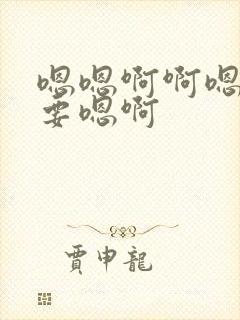 嗯嗯啊啊嗯
要嗯啊
贾申龙